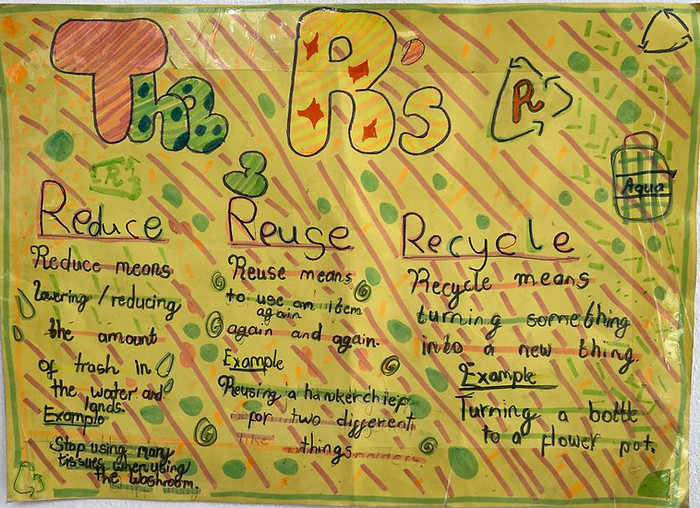 The 3 R's
R
R
Aqua
Reduce
Reduce means
lowering / reducing
the amount
of trash in
the water and
lands.
Example
Stop using many
tissues when using
the washroom.
Reuse
Reuse means
to use an item
again
again and again.
Example
Reusing a hankerchief
for two different
things
Recycle
Recycle means
turning something
into a new thing.
Example
Turning a bottle
to a flower pot.